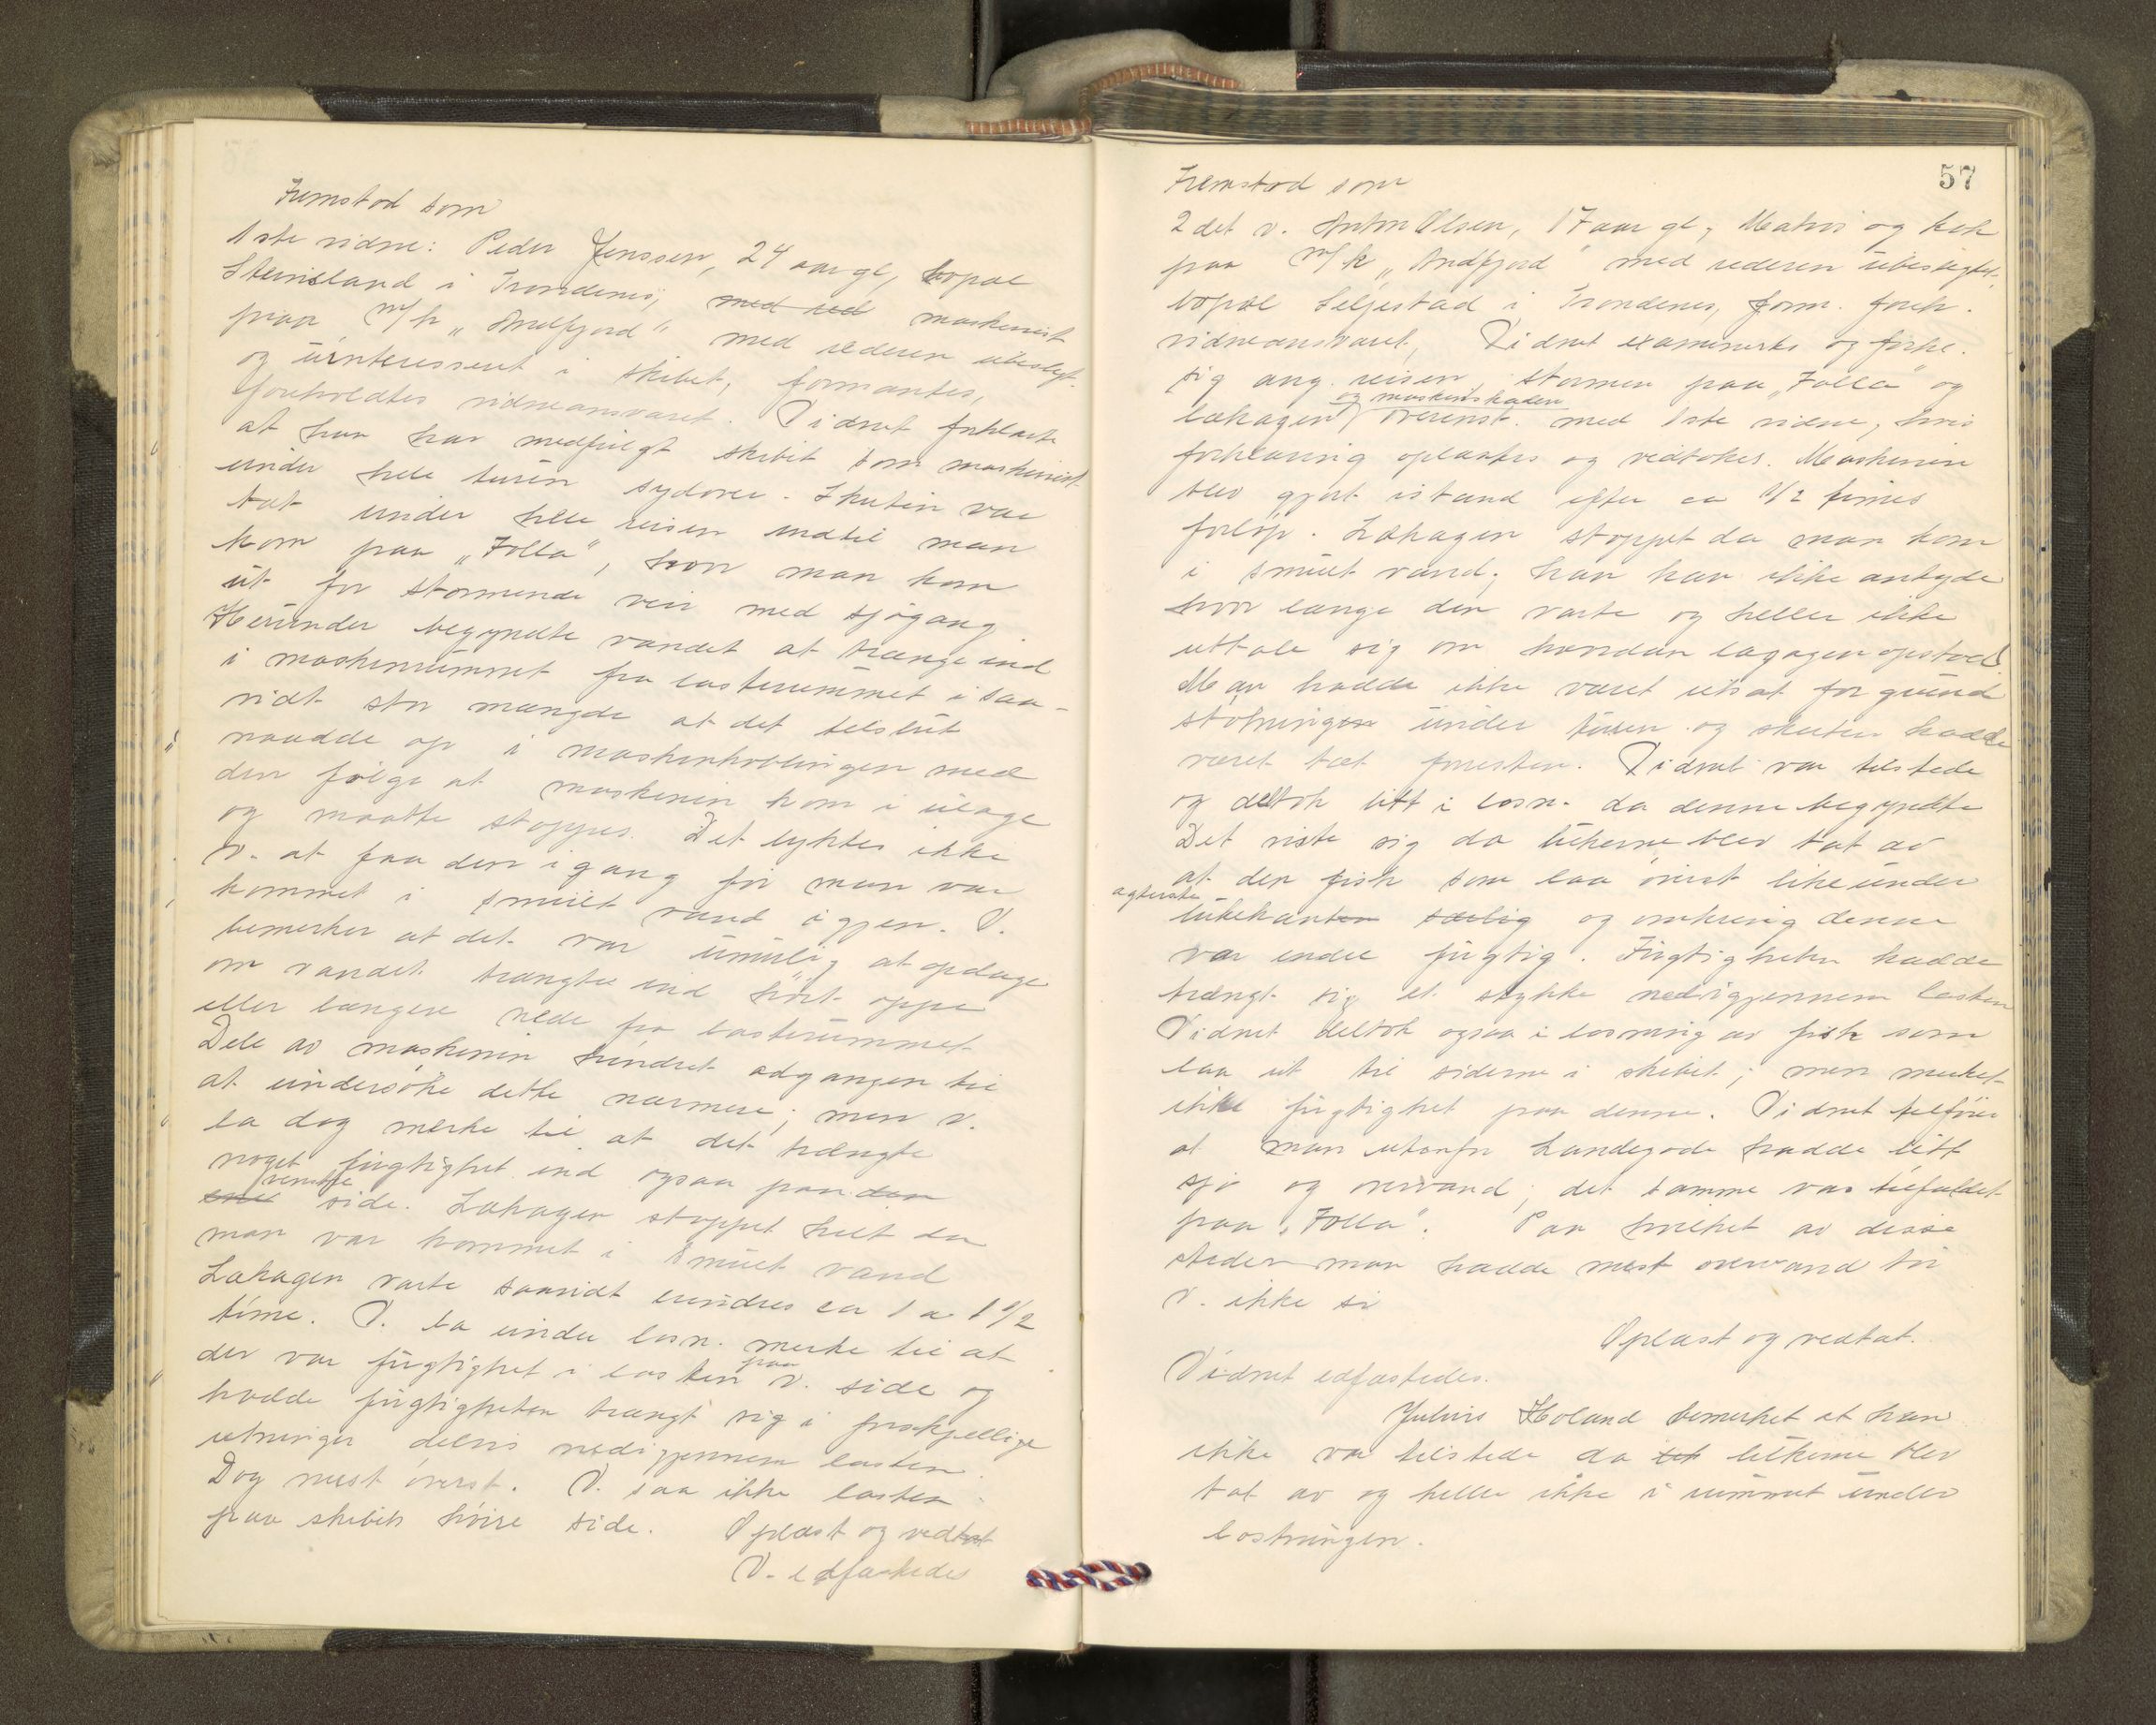 Fremstod som
1ste vidne: Peder Jenssen, 24 aar gl, bopæl
Steinsland i Trondenes, med red maskinist
paa m/k "Andfjord" med rederen ubeslegt.
og uinteressert i skibet, formantes,
foreholdtes vidneansvaret. Vidnet forklarte
at han har medfulgt skibet som maskinist
under hele turen sydover. Skuten var
tæt under hele reisen indtil man
kom paa "Folla", hvor man kom
ut for stormende veir med sjøgang.
Herunder begyndte vandet at trænge ind
i maskinrummet fra lasterummet i saa-
vidt stor mængde at det tilslut
naadde op i maskinkoblingen med
den følge at maskinen kom i ulage
og maatte stoppes. Det lyktes ikke
V. at faa den igang før man var
kommet i smult vand igjen. V.
bemerker at det var umulig at opdage
om vandet trængte ind høit oppe
eller længere nede fra lasterummet.
Dele av maskinen hindret adgangen til
at undersøke dette nærmere; men V.
la dog merke til at det trængte
noget fugtighet ind ogsaa paa den
ene venstre side. Lækagen stoppet helt da
man var kommet i smult vand
Lækagen varte saavidt erindres ca 1 a 1 1/2
time. V. la under losn. merke til at
der var fugtighet i lasten paa v. side og
hadde fugtigheten trængt sig i forskjellige
retninger delvis nedigjennem lasten.
Dog mest øverst. V. saa ikke lasten
paa skibets høire side. Oplæst og vedtat
V. edfæstedes
57
Fremstod som
2det v. Anton Olsen, 17 aar gl, Matros og kok
paa m/k "Andfjord" med rederen ubeslegtet,
bopæl Seljestad i Trondenes, form. foreh.
vidneansvaret, Vidnet examinertes og forkl.
sig ang. reisen, stormen paa "Folla" og
lækagen og maskinskaden overenst. med 1ste vidne, hvis
forklaring oplæstes og vedtokes. Maskinen
blev gjort istand efter ca 1/2 times
forløp. Lækagen stoppet da man kom
i smult vand; han kan ikke antyde
hvor længe den varte og heller ikke
uttale sig om hvordan lægagen opstod
Man hadde ikke været utsat for grund
støtninger under turen og skuten hadde
været tæt forresten. Vidnet var tilstede
og deltok litt i losn. da denne begyndte
Det viste sig da lukerne blev tat av
at den fisk som laa øverst like under
agterste lukekanten særlig og omkring denne
var endel fugtig. Fugtigheten hadde
trængt sig et stykke nedigjennem lasten
Vidnet deltok ogsaa i losning av fisk som
laa ut til siderne i skibet; men merket
ikke fugtighet paa denne. Vidnet tilføier
at man utenfor Landegode hadde litt
sjø og overvand; det samme var tilfældet
paa "Folla". Paa hvilket av disse
steder man hadde mest overvand tør
V. ikke si
Oplæst og vedtat.
Vidnet edfæstedes.
Julius Holand bemerket at han
ikke var tilstede da lukerne blev
tat av og heller ikke i rummet under
lostningen.